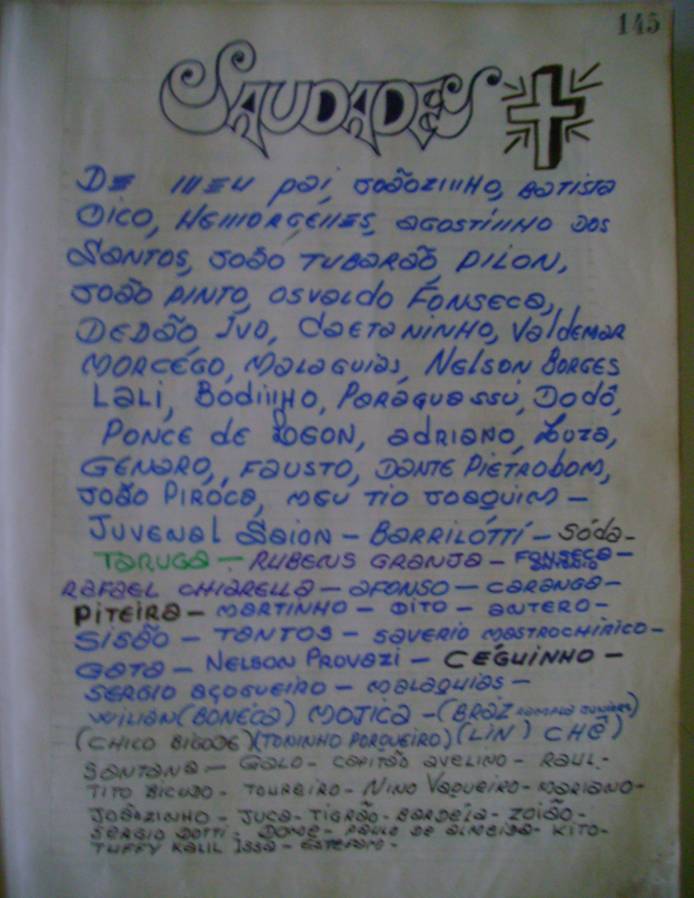 145
SAUDADES
DE MEU pai, JOÃOZINHO, BATISTA
OICO, HEMORGENES, AGOSTINHO DOS
SANTOS, JOÃO TUBARÃO, DILON,
JOÃO PINTO, OSVALDO FONSECA,
DEDÃO, IVO, CAETANINHO, VALDEMAR
MORCEGO, MALAGUIAS, NELSON BORGES
LALI, BODINHO, PARAGUASSÚ, DODÔ,
PONCE de LEON, ADRIANO, LUZA,
GENARO, FAUSTO, DANTE PIETROBOM,
JOÃO PIROCA, MEU TIO JOAQUIM -
JUVENAL SAION - BARRILOTTI - SÓDA-
TARUGA - RUBENS GRANJA - FONSECA -
RAFAEL CHIARELLA - AFONSO - CARANGA -
PITEIRA - MARTINHO - DITO - ANTERO -
SISÃO - TANTOS - SAVERIO MASTROCHIRICO -
GATA - NELSON PROVAZI - CÉGUINHO -
SERGIO AÇOGUEIRO - MALAQUIAS -
WILIAN (BONECA) MOJICA - (BRAZ ROMANO JUNIOR)
(CHICO BIGODE) (TONINHO PORQUEIRO) (LIN) CHÊ)
SANTANA - GALO - CAPITÃO AVELINO - RAUL -
TITO BICUDO - TOUREIRO - NINO VAQUEIRO - MARIANO -
JOÃOZINHO - JUCA - TIGRÃO - BARDELA - ZOIÃO -
SERGIO DOTTI - DONE - PAULO DE ALMEIDA - KITO -
TUFFY KALIL ISSA - ESTEFAM -